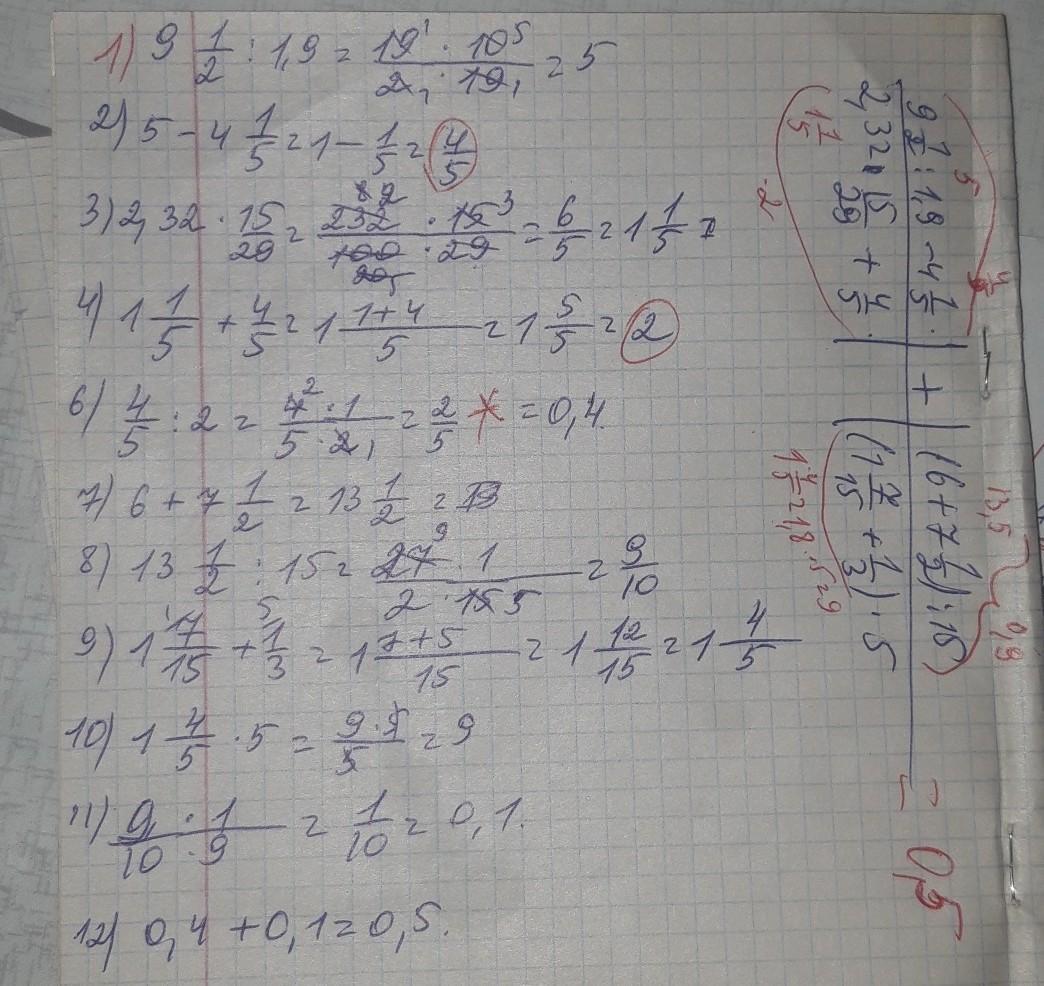 1) 9 1/2 : 1,9 = 19 · 10 / 2 · 19 = 5
2) 5 - 4 1/5 = 1 - 1/5 = 4/5
3) 2,32 · 15/29 = 232 · 15 / 100 · 29 = 6/5 = 1 1/5
4) 1 1/5 + 4/5 = 1 1+4/5 = 1 5/5 = 2
6) 4/5 : 2 = 4 · 1 / 5 · 2 = 2/5 = 0,4.
7) 6 + 7 1/2 = 13 1/2 =
8) 13 1/2 : 15 = 27 · 1 / 2 · 15 = 9/10
9) 1 7/15 + 1/3 = 1 7+5/15 = 1 12/15 = 1 4/5
10) 1 4/5 · 5 = 9 · 5 / 5 = 9
11) 9 · 1 / 10 · 9 = 1/10 = 0,1.
12) 0,4 + 0,1 = 0,5.
5 4/5 13,5 0,9
9 1/2 : 1,9 - 4 1/5 + (6 + 7 1/2) : 15
2,32 · 15/29 + 4/5 (1 7/15 + 1/3) · 5
= 0,5
1 1/5 2 1 4/5 = 1,8 · 5 = 9